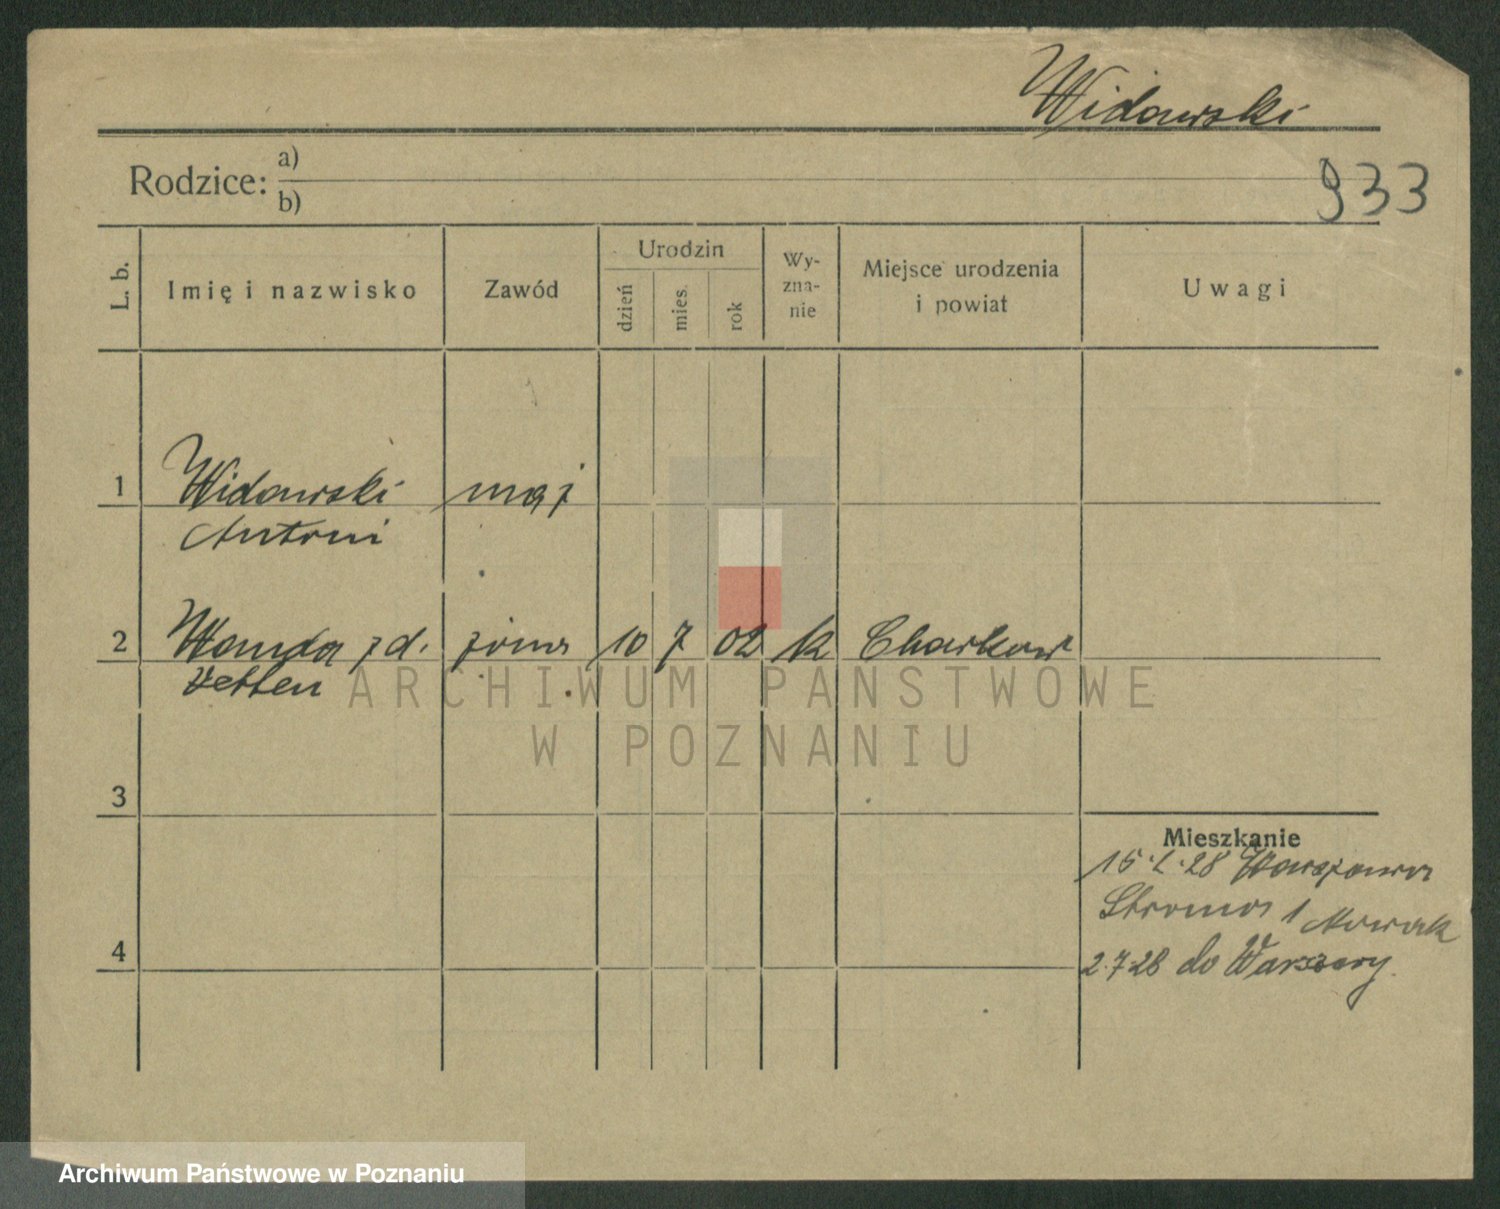 Widawski
Rodzice: a)
b)
933
L. b.
Imię i nazwisko
Zawód
Urodzin
dzień
mies.
rok
Wy-
zna-
nie
Miejsce urodzenia
i powiat
Uwagi
1 Widawski
Antoni
2 Wanda zd. żona 10 7 02 k Charkow
3
Mieszkanie
15. .28 Warszawa
Stroma 1 Nowak
4
2.7.28 do Warszawy
ARCHIWUM PAŃSTWOWE
W POZNANIU
Archiwum Państwowe w Poznaniu